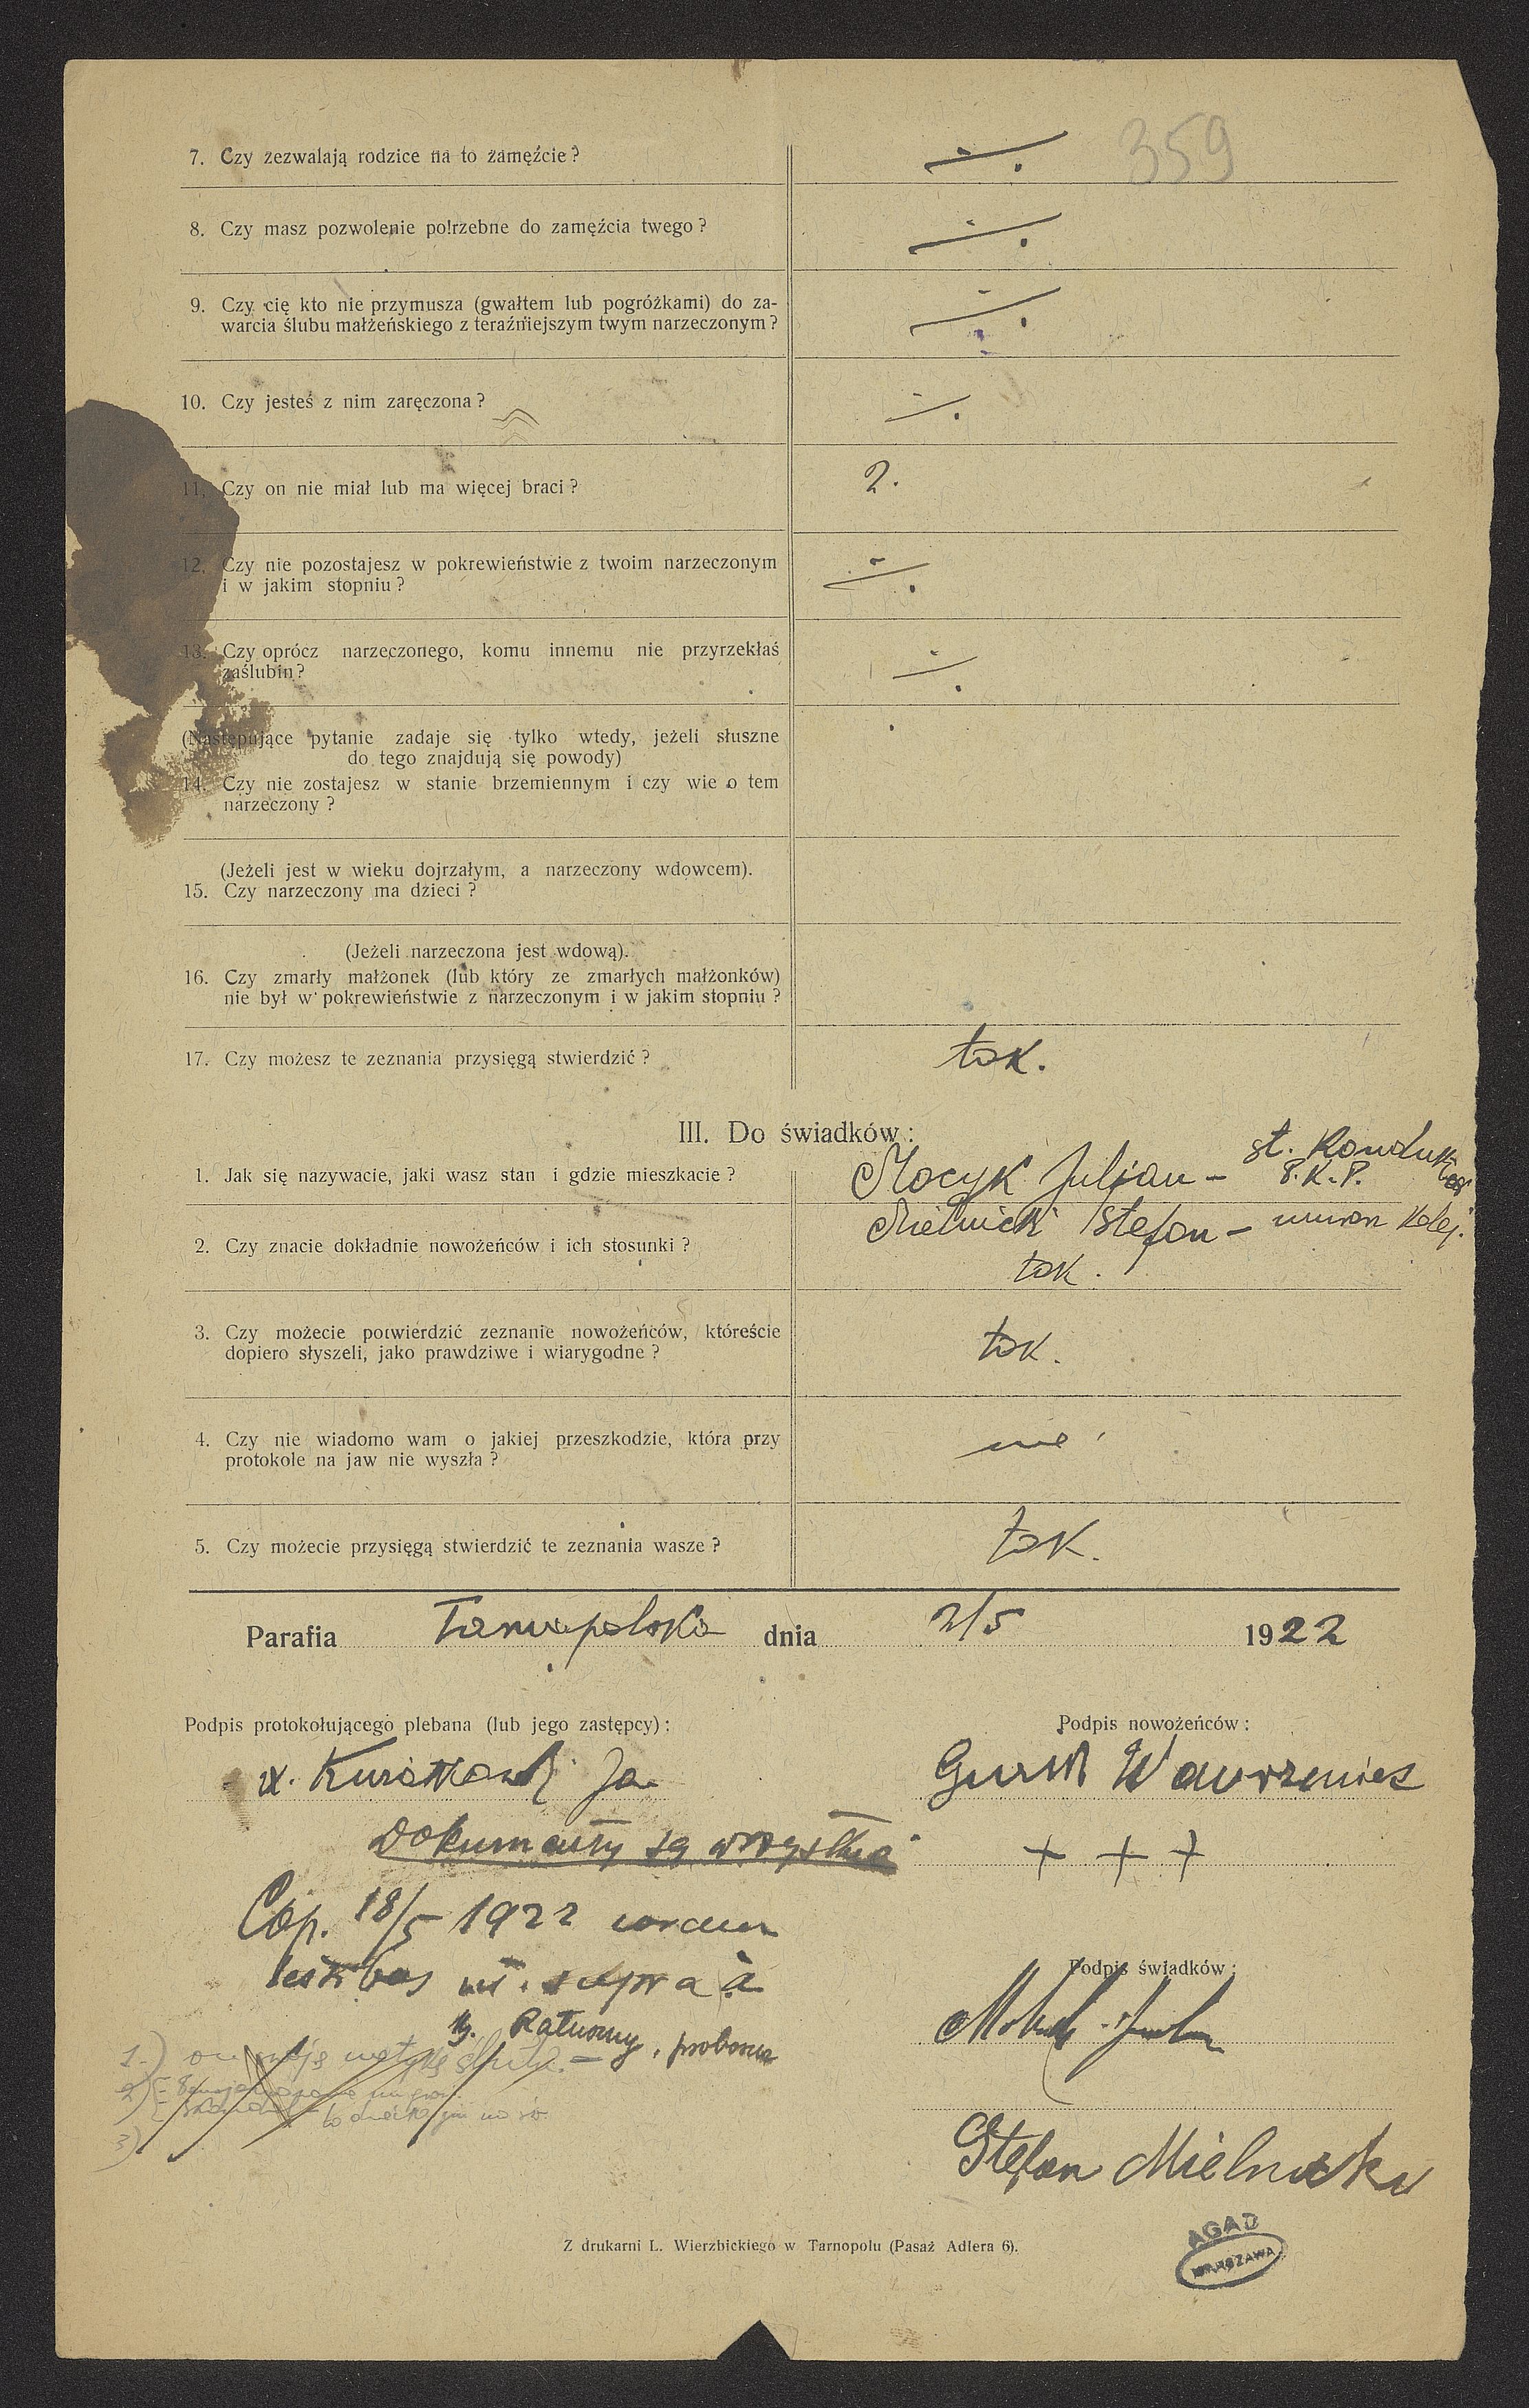 359
7. Czy zezwalają rodzice na to zamęźcie? ÷
8. Czy masz pozwolenie potrzebne do zamęźcia twego? ÷
9. Czy cię kto nie przymusza (gwałtem lub pogróżkami) do za-
warcia ślubu małżeńskiego z teraźniejszym twym narzeczonym? ÷
10. Czy jesteś z nim zaręczona? ÷
11. Czy on nie miał lub ma więcej braci? 2.
12. Czy nie pozostajesz w pokrewieństwie z twoim narzeczonym
i w jakim stopniu? ÷
13. Czy oprócz narzeczonego, komu innemu nie przyrzekłaś
zaślubin? ÷
(Następujące pytanie zadaje się tylko wtedy, jeżeli słuszne
do tego znajdują się powody)
14. Czy nie zostajesz w stanie brzemiennym i czy wie o tem
narzeczony?
(Jeżeli jest w wieku dojrzałym, a narzeczony wdowcem).
15. Czy narzeczony ma dzieci?
(Jeżeli narzeczona jest wdową).
16. Czy zmarły małżonek (lub który ze zmarłych małżonków)
nie był w pokrewieństwie z narzeczonym i w jakim stopniu?
17. Czy możesz te zeznania przysięgą stwierdzić? tak.
III. Do świadków:
1. Jak się nazywacie, jaki wasz stan i gdzie mieszkacie? Julian – st. Konduktor
P.K.P.
Mielnicki Stefan – kolej.
2. Czy znacie dokładnie nowożeńców i ich stosunki? tak.
3. Czy możecie potwierdzić zeznanie nowożeńców, któreście
dopiero słyszeli, jako prawdziwe i wiarygodne? tak.
4. Czy nie wiadomo wam o jakiej przeszkodzie, która przy
protokole na jaw nie wyszła? nie
5. Czy możecie przysięgą stwierdzić te zeznania wasze? tak.
Parafia Tarnopolska dnia 2/5 1922
Podpis protokołującego plebana (lub jego zastępcy): Podpis nowożeńców:
x. Jan Wawrzeniec
Dokumenty są wszystkie + + +
Cop. 18/5 1922 coram
testibus ut supra à
Podpis świadków:
Ratuszny, proboszcz
1.)
2)
3)
Stefan Mielnicki
Z drukarni L. Wierzbickiego w Tarnopolu (Pasaż Adlera 6).
AGAD
WARSZAWA